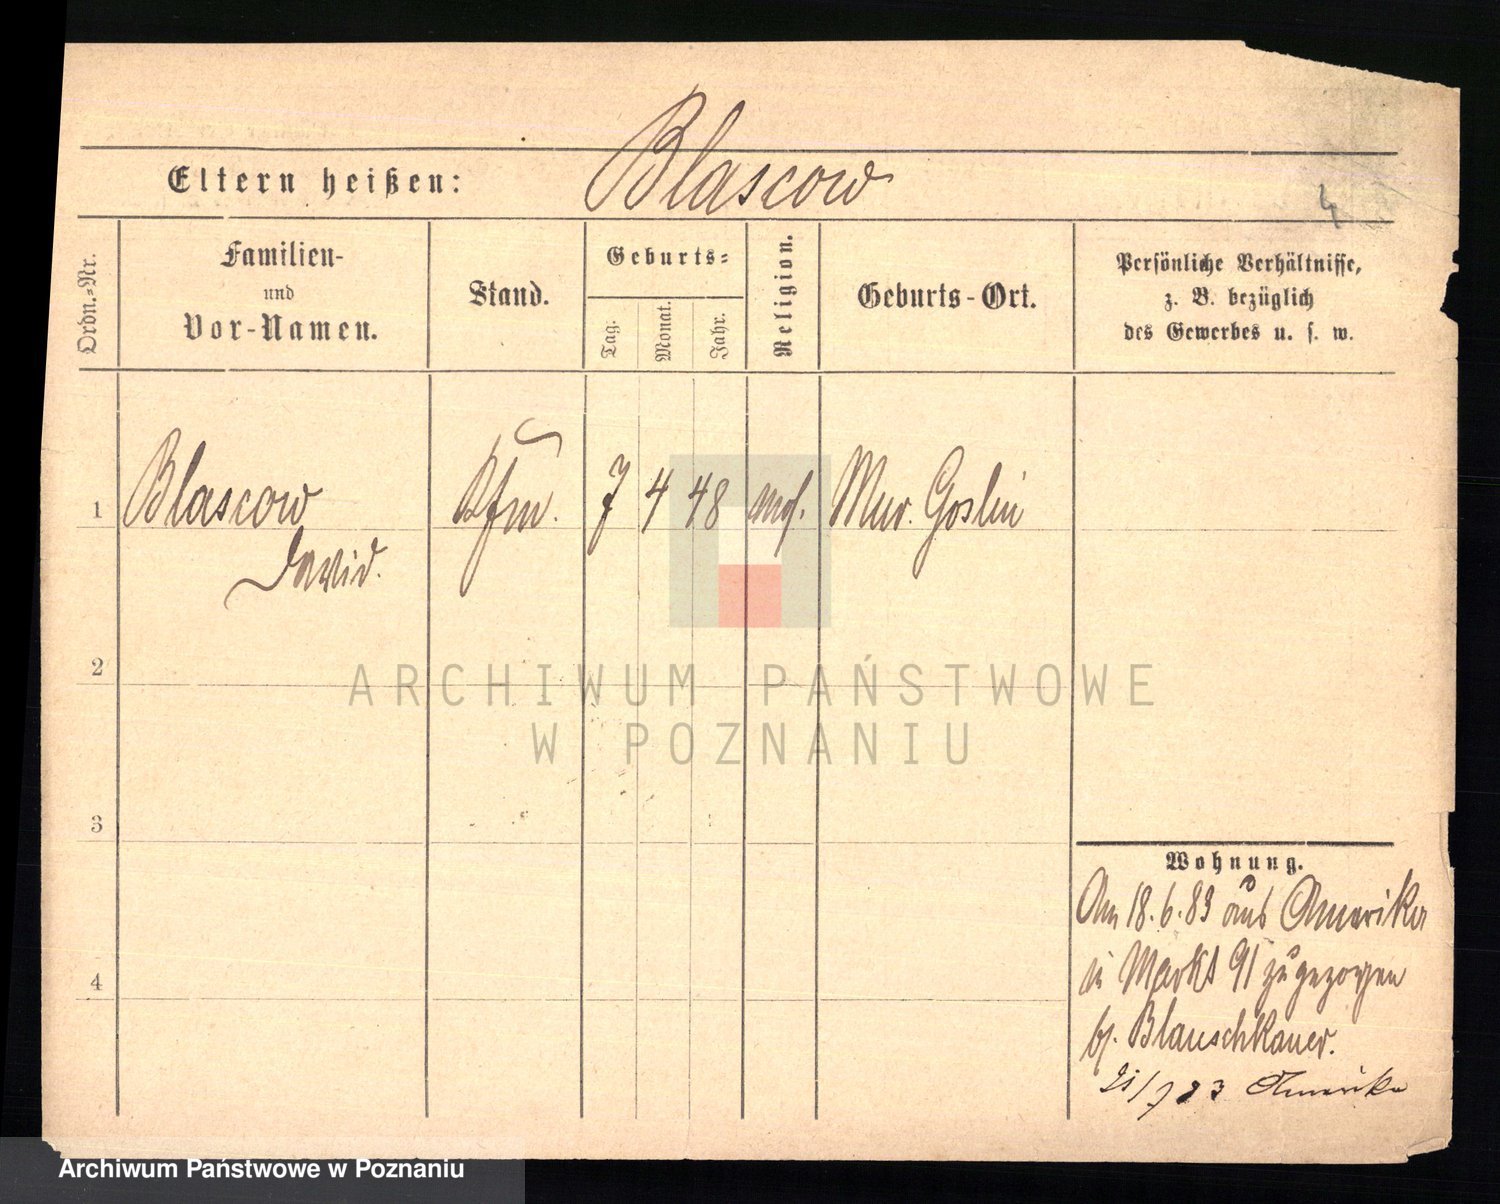 Eltern heißen: Blascow
4
Ordn.-Nr.
Familien-
und
Vor-Namen.
Stand.
Geburts-
Tag.
Monat.
Jahr.
Religion.
Geburts-Ort.
Persönliche Verhältnisse,
z. B. bezüglich
des Gewerbes u. s. w.
1 Blascow Kfm. 7 4 48 mos. Mur. Goslin
David.
2
ARCHIWUM PAŃSTWOWE
W POZNANIU
3
Wohnung.
Am 18.6.83 aus Amerika
in Markt 91 zugezogen
b/. Blauschkauer.
/7 83 Amerika
4
Archiwum Państwowe w Poznaniu